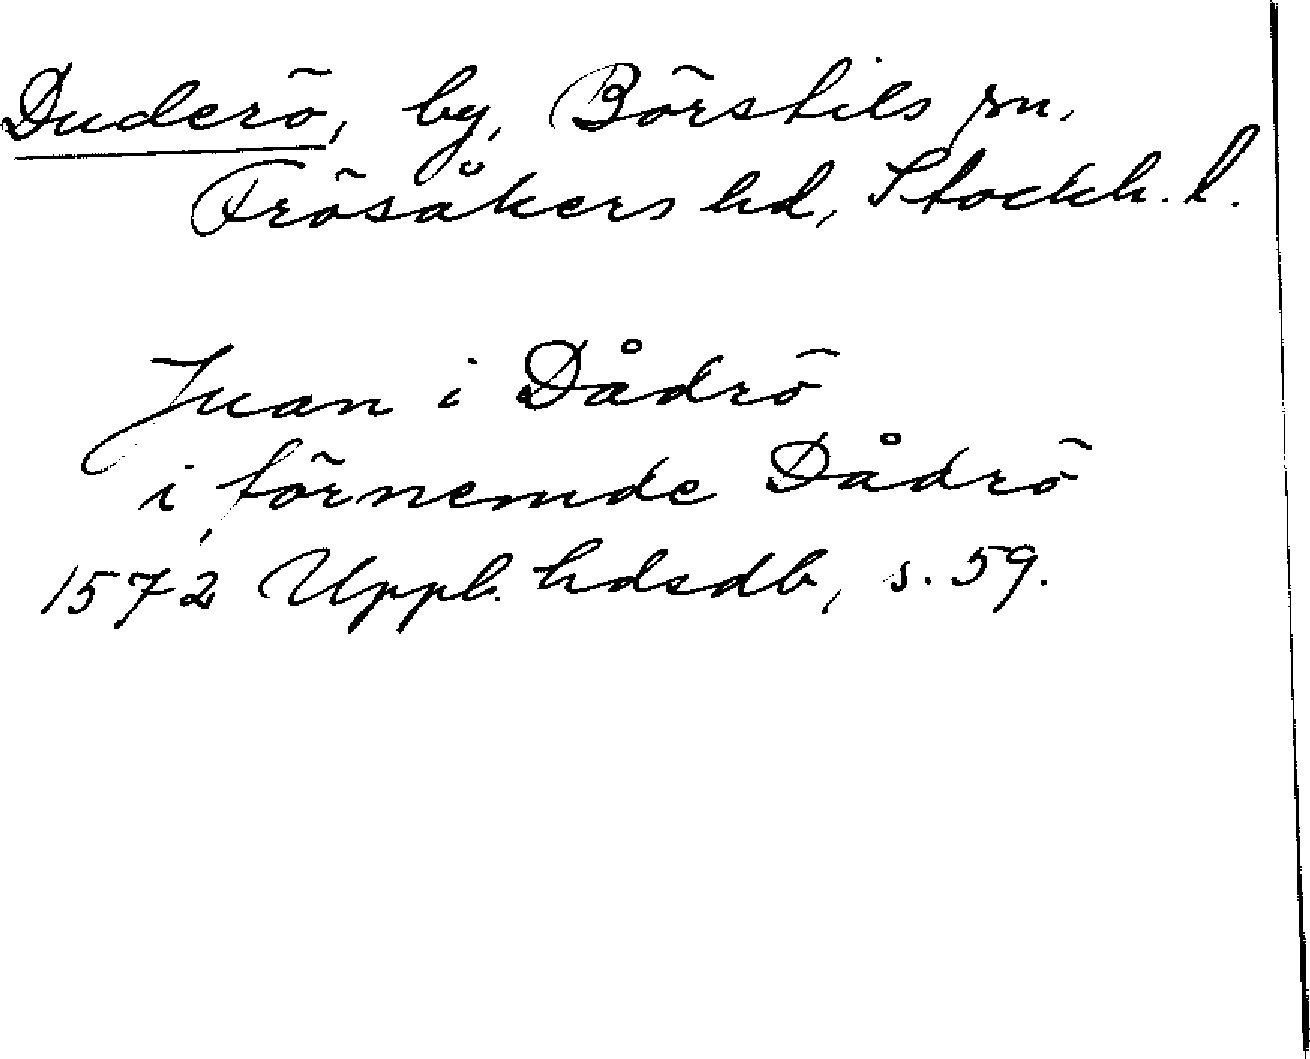 Duderö, by, Börstils sn,
Frösåkers hd, Stockh. l.
Juan i Dådrö
i förnemde Dådrö
1572 Uppl. hdsdb, s. 59.